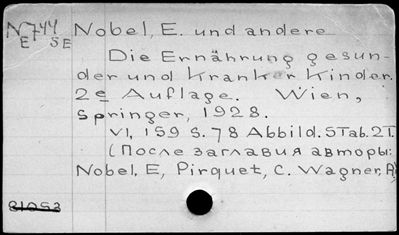 N744 Nobel, E. und andere
E SE
Die Ernährung gesun-
der und Kranker Kinder.
2e Auflage. Wien,
Springer, 1928.
VI, 159 S. 78 Abbild. 5 Tab. 2 T.
(После заглавия авторы:
Nobel, E, Pirquet, C. Wagner, R)
81053